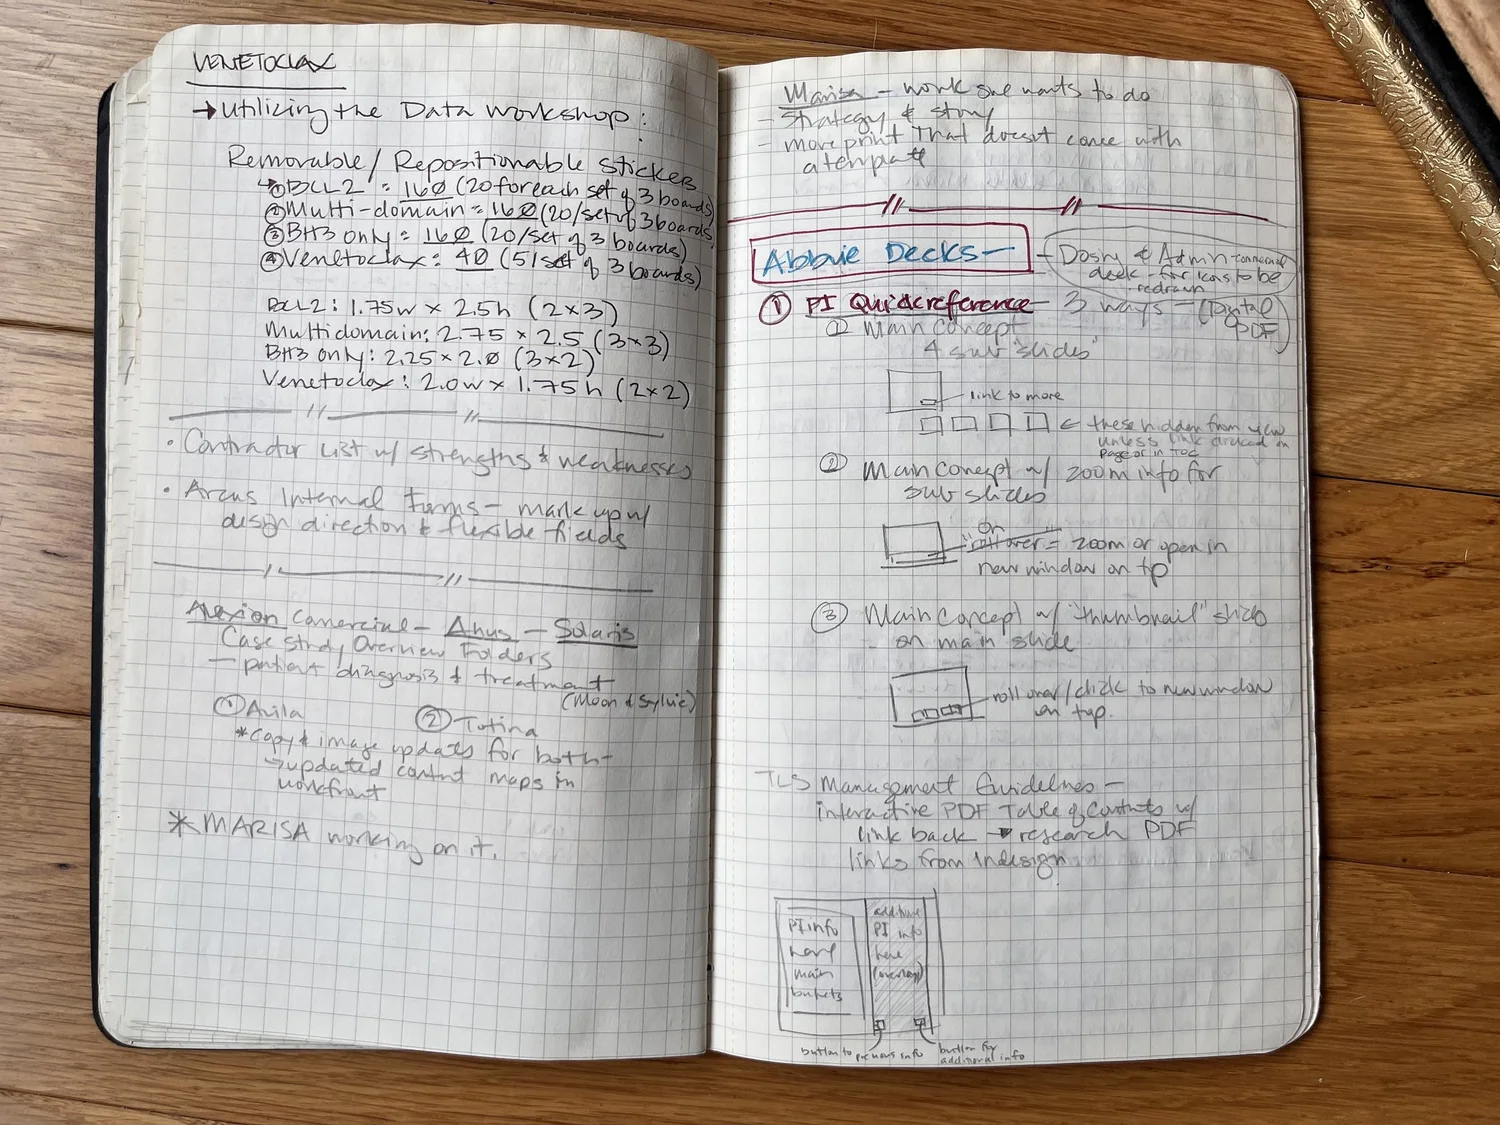 VENETOCLAX
→ Utilizing the Data Workshop:
Removable/Repositionable stickers
↳ ① BCL2 = 160 (20 for each set of 3 boards)
② Multi-domain = 160 (20/set of 3 boards)
③ BH3 only = 160 (20/set of 3 boards)
④ Venetoclax: 40 (5/set of 3 boards)
BCL2: 1.75w x 2.5h (2x3)
Multidomain: 2.75 x 2.5 (3x3)
BH3 only: 2.25 x 2.0 (3x2)
Venetoclax: 2.0w x 1.75h (2x2)
• Contractor List w/ strengths & weaknesses
• Arcus Internal Forms — mark up w/
design direction & flexible fields
Alexion Comercial — Ahus — Solaris
Case Study Overview Folders
— patient diagnosis & treatment
(Moon & Sylvie)
① Avila ② Totina
* copy & image updates for both -
→ updated content maps in
workfront
* MARISA working on it.
Marisa — work she wants to do
- Strategy & story
- more print that doesnt come with
a template
Abbvie Decks —
- Dosing & Admin commercial
deck - for icons to be
redrawn
① PI Quickreference — 3 ways — (Digital
PDF)
① Main Concept
4 sub "slides"
link to more
← these hidden from view
unless link clicked on
page or in TOC
② Main concept w/ zoom info for
sub slides
on
"rollover" = zoom or open in
new window on tp
③ Main concept w/ "thumbnail" slide
on main slide
roll over/click to new window
on top.
TLS Management Guidelines —
interactive PDF Table of Contents w/
link back → research PDF
links from Indesign
PI info
here
main
buckets
additional
PI info
here
(overlay)
button to previous info
button for
additional info